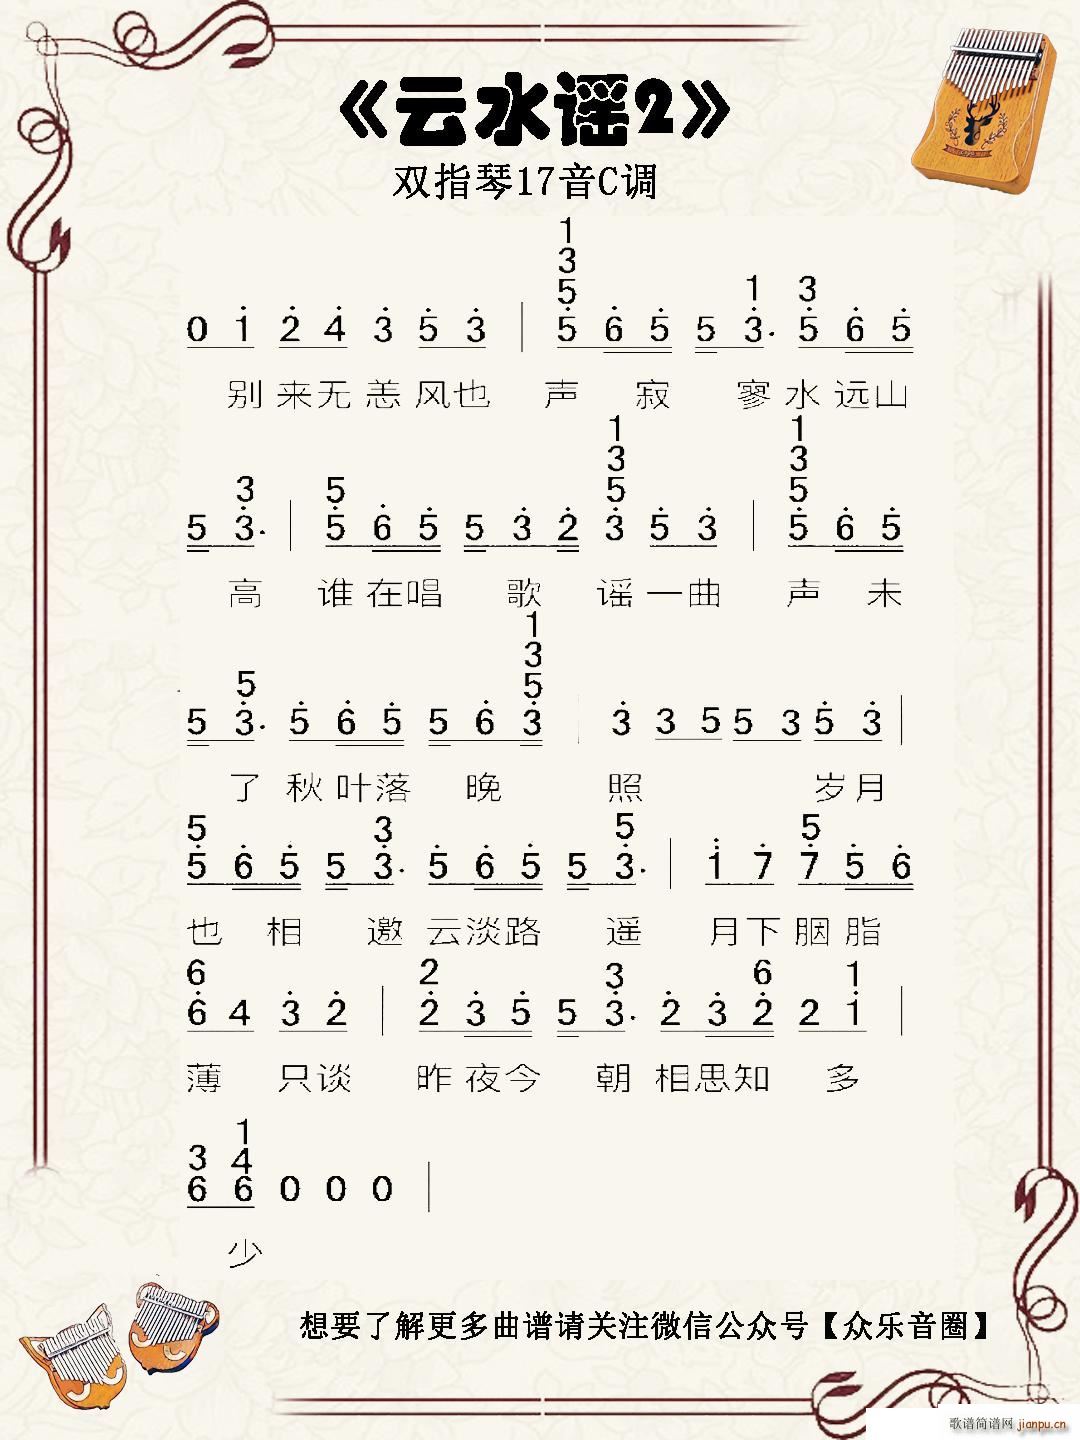 《云水谣2》
双指琴17音C调
1
3
5 1 3
0 1 2 4 3 5 3 | 5 6 5 5 3. 5 6 5
别来无恙风也 声 寂 寥水远山
1 1
3 3
3 5 5 5
5 3. | 5 6 5 5 3 2 3 5 3 | 5 6 5
高 谁在唱 歌 谣一曲 声 未
1
3
5 5
5 3. 5 6 5 5 6 3 | 3 3 5 5 3 5 3 |
了秋叶落 晚 照 岁月
5 3 5 5
5 6 5 5 3. 5 6 5 5 3. | 1 7 7 5 6
也 相 邀云淡路 遥 月下胭脂
6 2 3 6 1
6 4 3 2 | 2 3 5 5 3. 2 3 2 2 1 |
薄 只谈 昨夜今 朝相思知 多
1
3 4
6 6 0 0 0 |
少
想要了解更多曲谱请关注微信公众号【众乐音圈】
歌谱简谱网 jianpu.cn